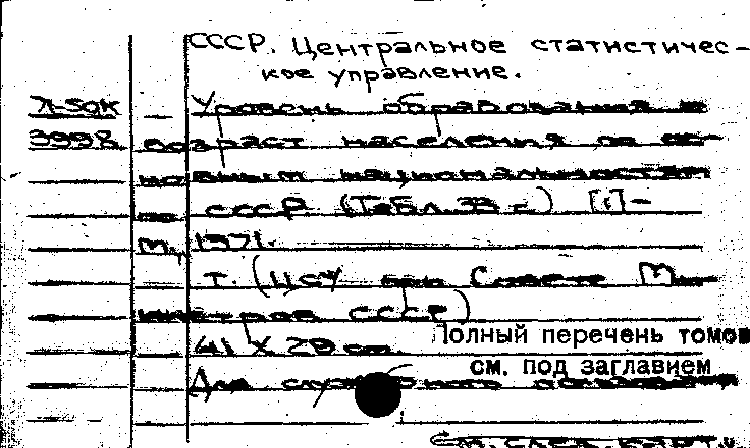 СССР. Центральное статистичес-
кое управление.
Л-50к — Уровень образования и
3998 возраст населения по ос-
новным национальностям
по СССР (Табл. 33 с) [1]-
М., 1971.
т. (ЦСУ при Совете Ми-
нистров СССР)
41 X 29 см.
Полный перечень томов
см. под заглавием
Для служебного пользования
См. след. карт.